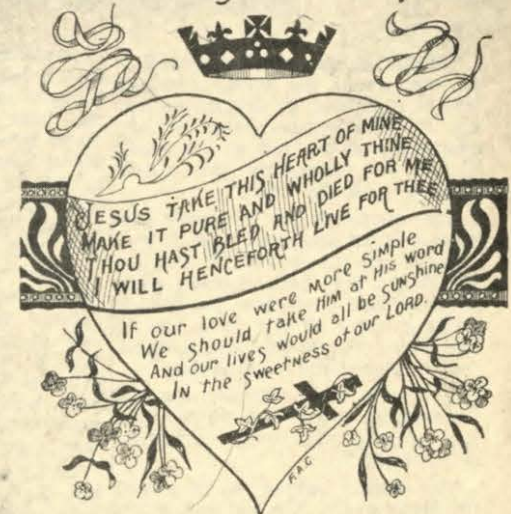 JESUS TAKE THIS HEART OF MINE
MAKE IT PURE AND WHOLLY THINE
THOU HAST BLED AND DIED FOR ME
I WILL HENCEFORTH LIVE FOR THEE
If our love were more simple
We should take Him at His word
And our lives would all be sunshine
In the sweetness of our LORD.
F.A.G